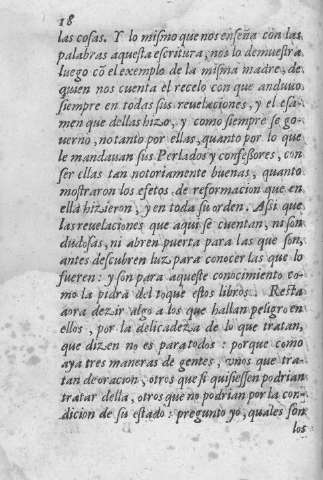 18
las cosas. Y lo mismo que nos enseña con las
palabras aquesta escritura, nos lo demuestra
luego cõ el exemplo de la misma madre, de
quien nos cuenta el recelo con que anduvo
siempre en todas sus revelaciones, y el esa-
men que dellas hizo, y como siempre se go-
verno, no tanto por ellas, quanto por lo que
le mandauan sus Perlados y confessores, con
ser ellas tan notoriamente buenas, quanto
mostraron los efetos de reformacion que en
ella hizieron, y en toda su orden. Assi que
las revelaciones que aqui se cuentan, ni son
dudosas, ni abren puerta para las que son,
antes descubren luz para conocer las que lo
fueren: y son para aqueste conocimiento co-
mo la pidra del toque estos libros. Resta
aora dezir algo a los que hallan peligro en
ellos, por la delicadeza de lo que tratan,
que dizen no es para todos: porque como
aya tres maneras de gentes, vnos que tra-
tan de oracion, otros que si quisiessen podrian
tratar della, otros que no podrian por la con-
dicion de su estado: pregunto yo, quales son
los